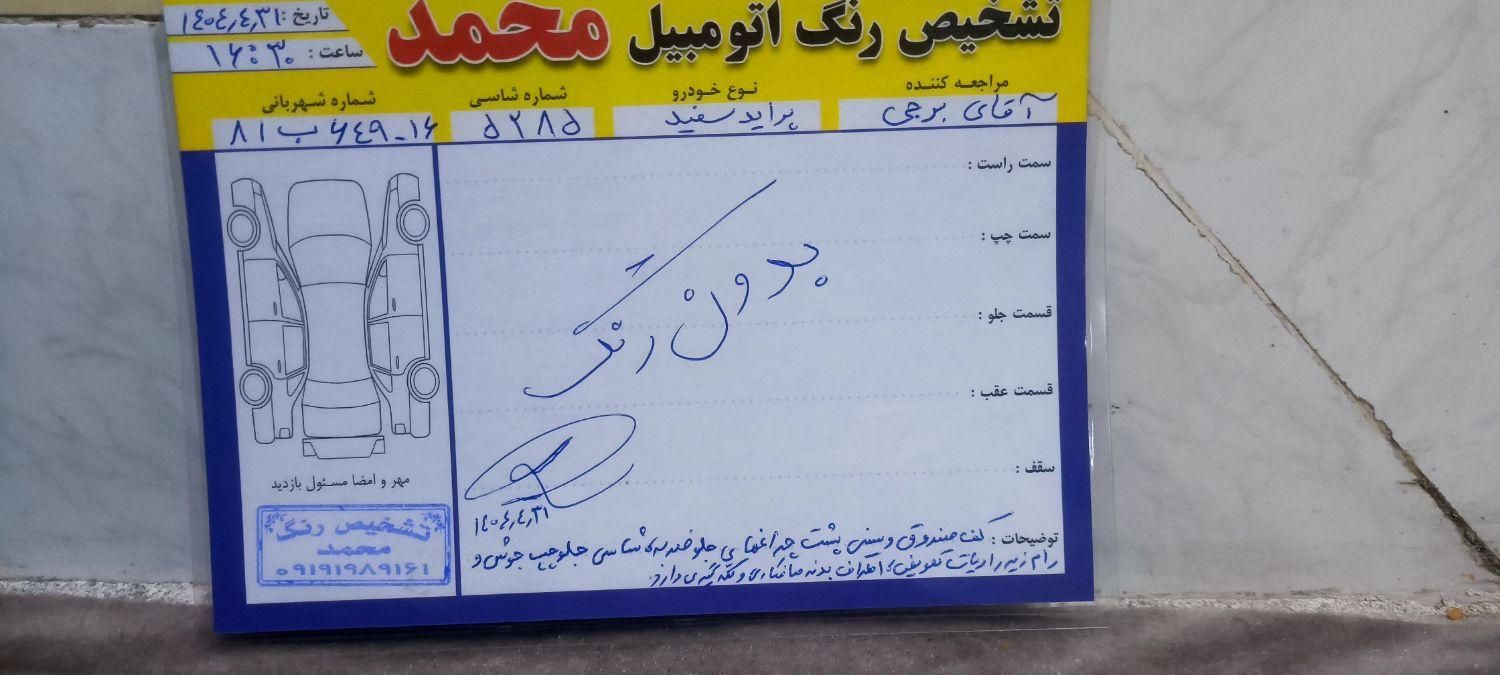 تشخیص رنگ اتومبیل محمد
تاریخ : ۱۴۰۴٫۴٫۳۱
ساعت : ۱۶:۳۰
مراجعه کننده
آقای برجی
نوع خودرو
پراید سفید
شماره شاسی
۵۲۸۵
شماره شهربانی
۸۱ ب ۶۴۹-۱۶
سمت راست :
سمت چپ :
قسمت جلو :
قسمت عقب :
سقف :
بدون رنگ
۱۴۰۴٫۴٫۳۱
توضیحات : کف صندوق و سینی پشت چراغهای جلو ضربه، شاسی جلو چپ جوش و
رام زیر رادیات تعویض، اطراف بدنه صافکاری و لکه گیری دارد.
مهر و امضا مسئول بازدید
تشخیص رنگ
محمد
۰۹۱۹۱۹۸۹۱۶۱